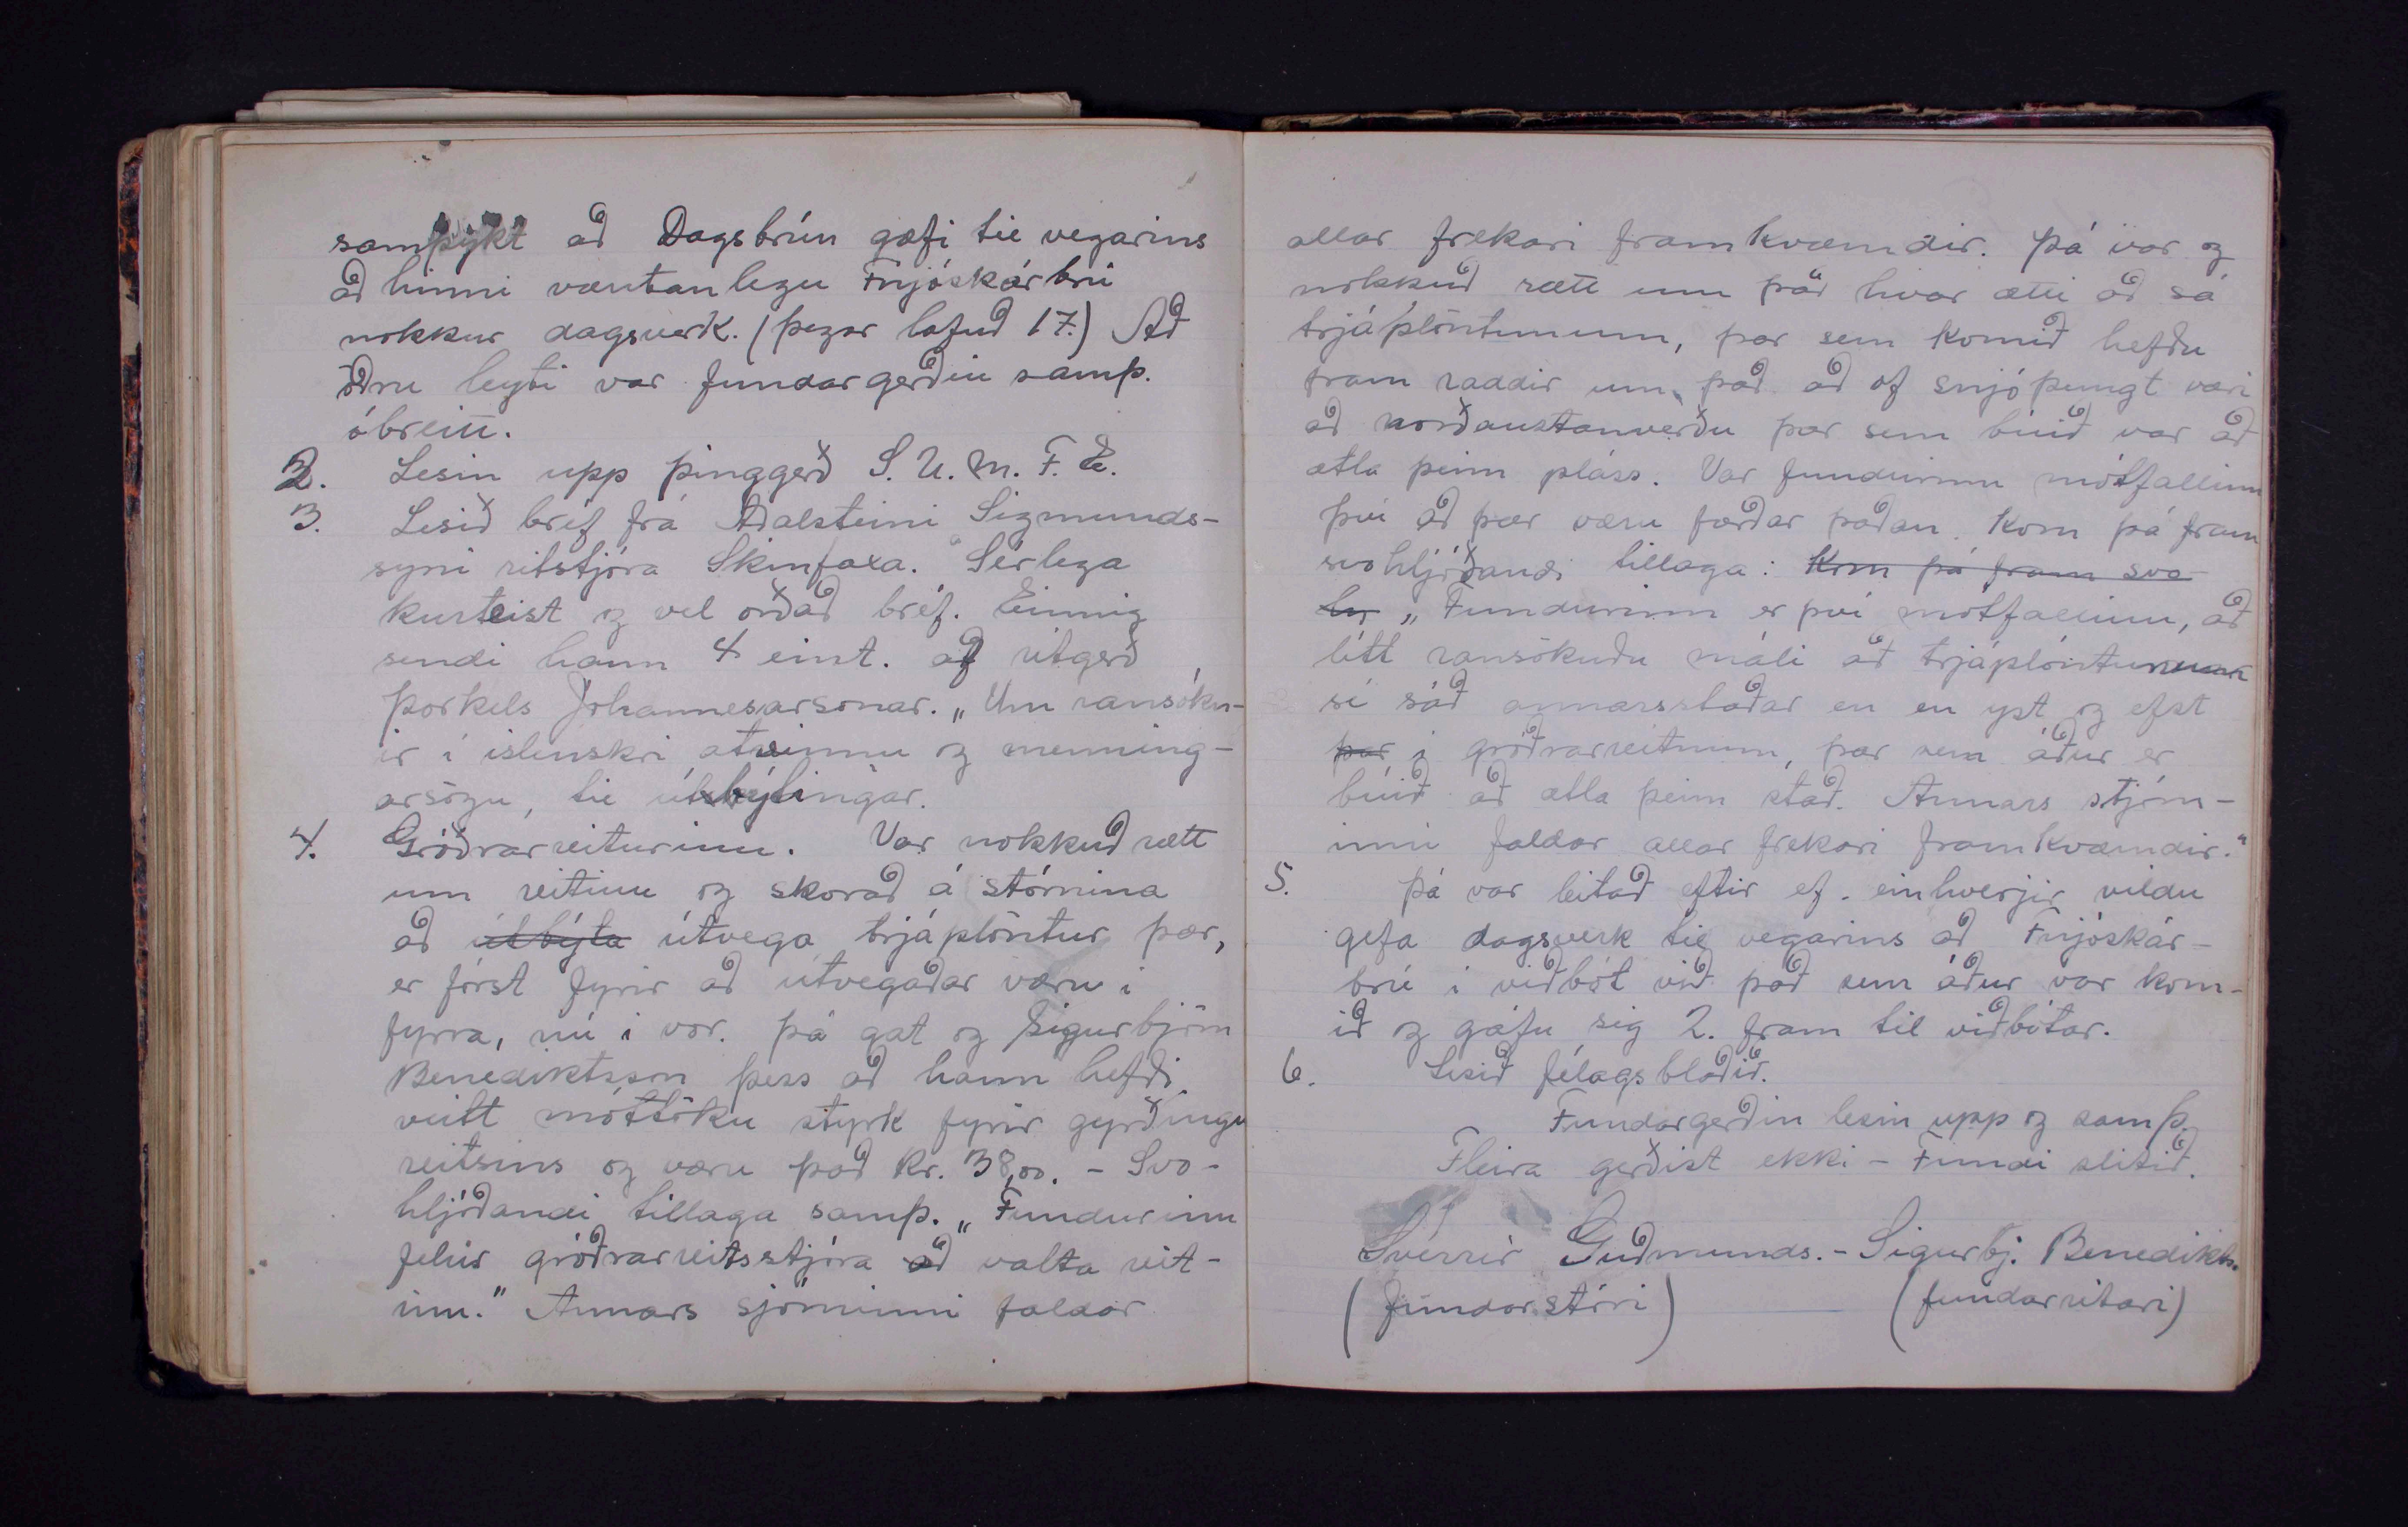 samþykt að Dagsbrún gæfi til vegarins
að hinni væntanlegu Fnjóskárbrú
nokkur dagsverk. (þegar lofuð 17.) Að
öðru leyti var fundargerðin samþ.
óbreitt.
2. Lesin upp þinggerð S. U. M. F. E.
3. Lesið bréf frá Aðalsteini Sigmunds-
syni ritstjóra Skinfaxa. Sérlega
kurteist og vel orðað bréf. Einnig
sendi hann 4 eint. af ritgerð
Þorkels Jóhannesarsonar. „Um ransókn-
ir í íslenskri atvinnu og menning-
arsögu, til útbýtingar.
4. Gróðrarreiturinn. Var nokkuð rætt
um reitinn og skorað á stórnina
að útbýta útvega trjáplöntur þær,
er fórst fyrir að útvegaðar væru í
fyrra, nú í vor. Þá gat og Sigurbjörn
Benediktsson þess að hann hefði
veitt móttöku styrk fyrir gyrðingu
reitsins og væru það kr. 38,00. - Svo-
hljóðandi tillaga samþ. „Fundurinn
felur gróðrarreitsstjóra að valta reit-
inn." Annars sjórninni faldar
allar frekari framkvæmdir. Þá var og
nokkuð rætt um það hvar ætti að sá
trjáplöntunum, þar sem komið hefðu
fram raddir um það að of snjóþungt væri
að norðaustanverðu þar sem búið var að
ætla þeim pláss. Var fundurinn mótfallinn
því að þær væru færðar þaðan. Kom þá fram
svohljóðandi tillaga: Kom þá fram svo
hj „Fundurinn er því mótfallinn, að
lítt ransökuðu máli að trjáplöntunum
sé sáð annarsstaðar en en yst og efst
þar í gróðrarreitnum, þar sem áður er
búið að ætla þeim stað. Annars stjórn-
inni faldar allar frekari framkvæmdir."
5. Þá var leitað eftir ef. einhverjir vildu
gefa dagsverk til vegarins að Fnjóskár-
brú í viðbót við það sem áður var kom-
ið og gáfu sig 2. fram til viðbótar.
6. Lesið félagsblaðið.
Fundargerðin lesin upp og samþ.
Fleira gerðist ekki - Fundi slitið.
Sverrir Guðmunds. - Sigurbj. Benedikts.
(fundarstóri) (fundarritari)